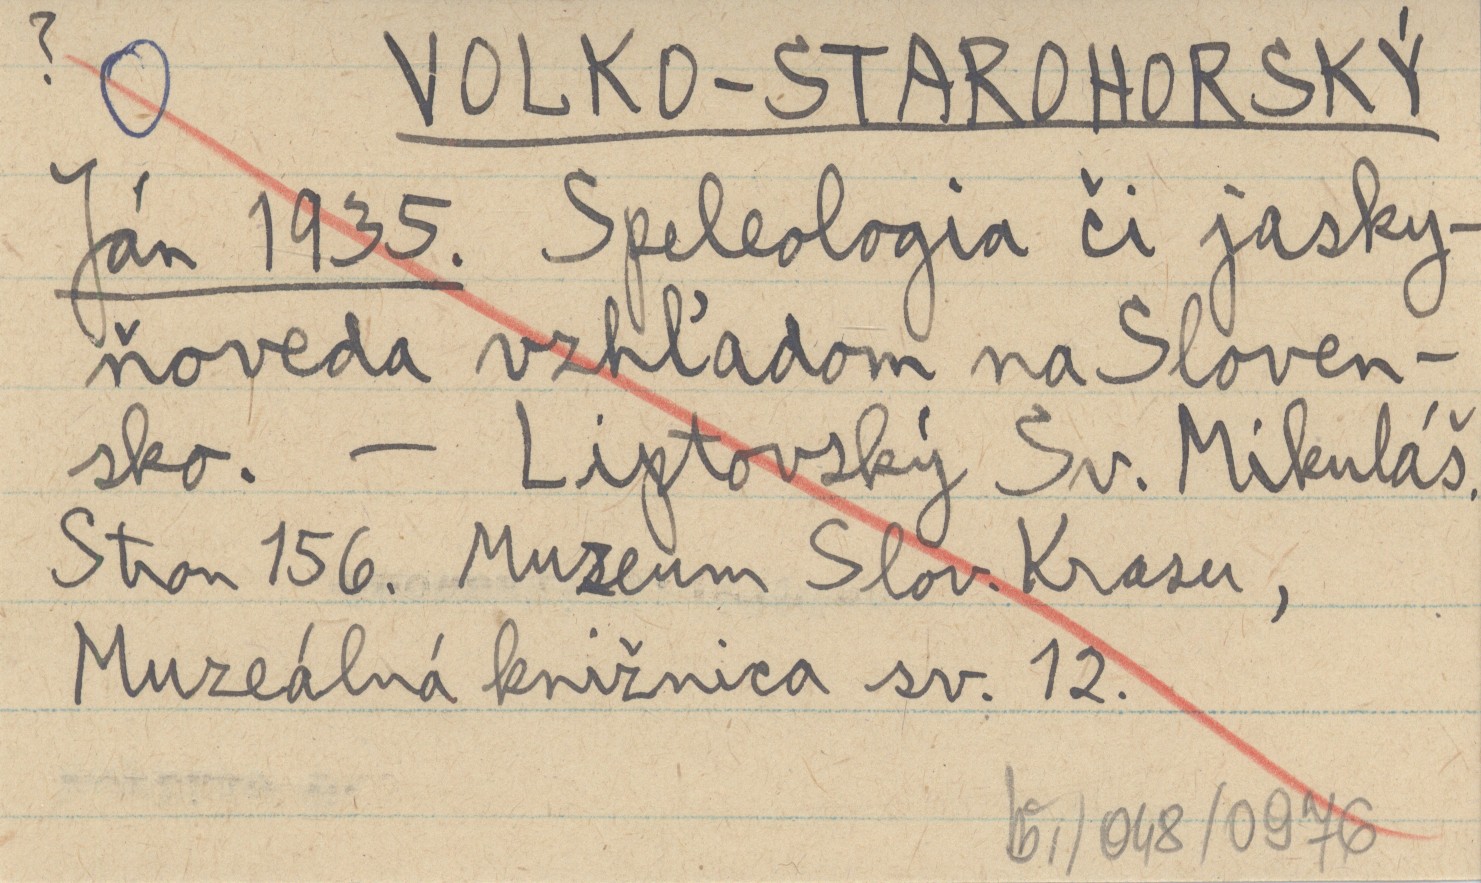 ?
VOLKO-STAROHORSKÝ
Ján 1935. Speleologia či jasky-
ňoveda vzhľadom na Sloven-
sko. — Liptovský Sv. Mikuláš.
Stran 156. Muzeum Slov. Krasu,
Muzeálná knižnica sv. 12.
/048/0976